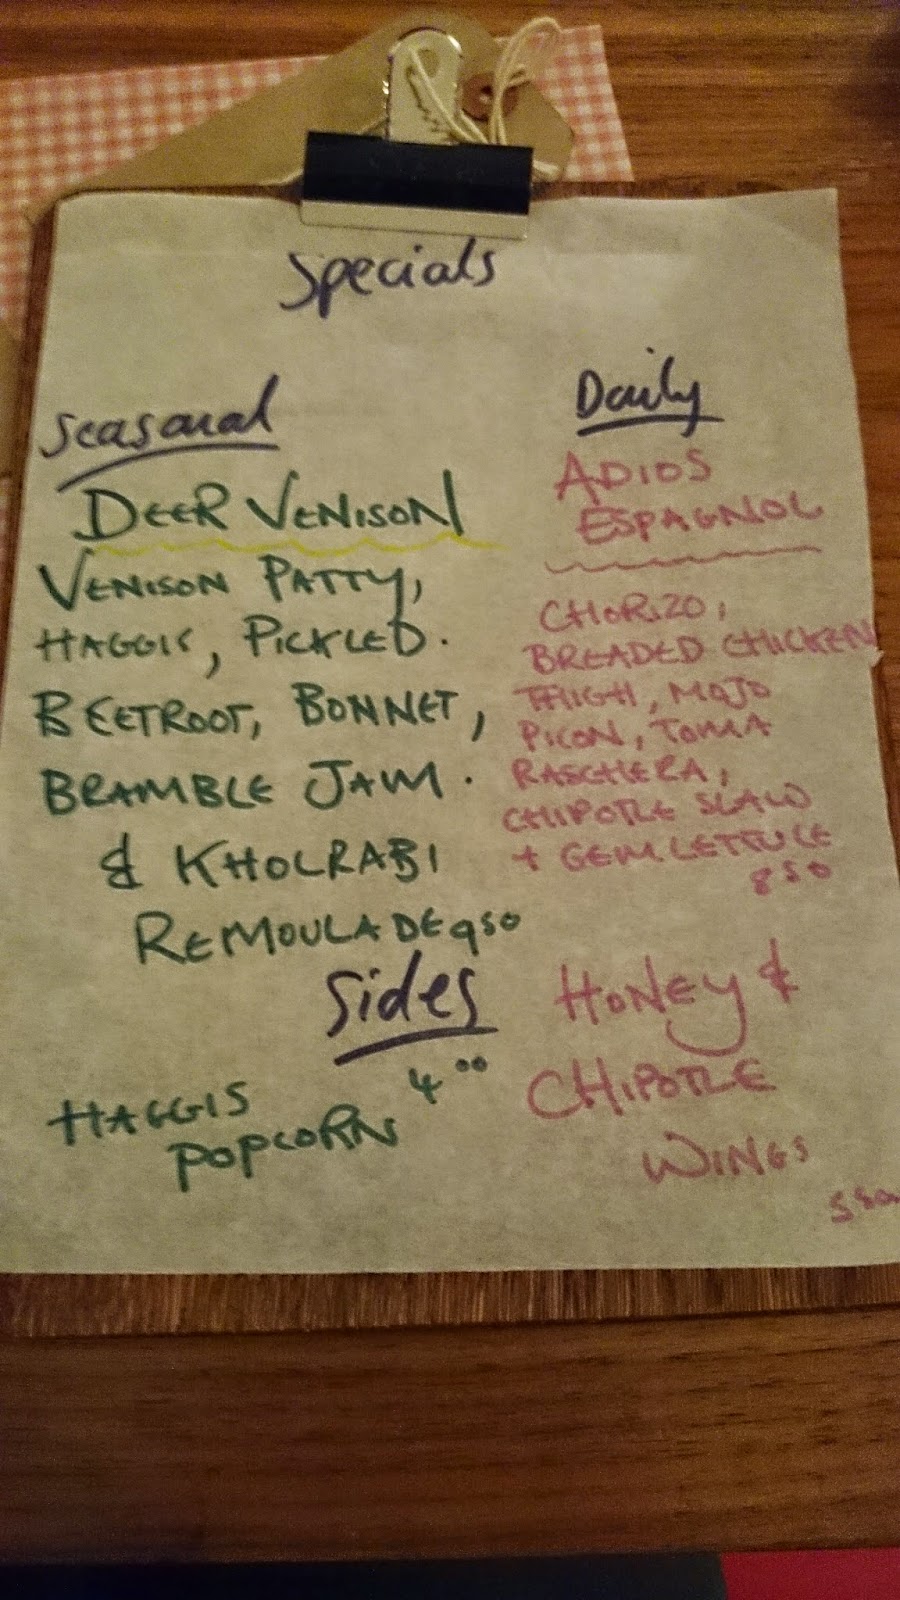 Specials
Seasonal
DEER VENISON
VENISON PATTY,
HAGGIS, PICKLED.
BEETROOT, BONNET,
BRAMBLE JAM.
& KHOLRABI
REMOULADE 950
Daily
ADIOS
ESPAGNOL
CHORIZO,
BREADED CHICKEN
THIGH, MOJO
PICON, TOMA
RASCHERA,
CHIPOTLE SLAW
+ GEM LETTUCE
850
Sides
HAGGIS
POPCORN 4.00
HONEY &
CHIPOTLE
WINGS